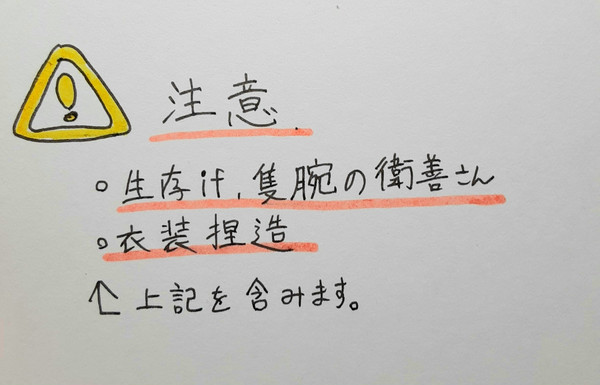 注意
○生存if、隻腕の衛善さん
○衣装捏造
↑上記を含みます。